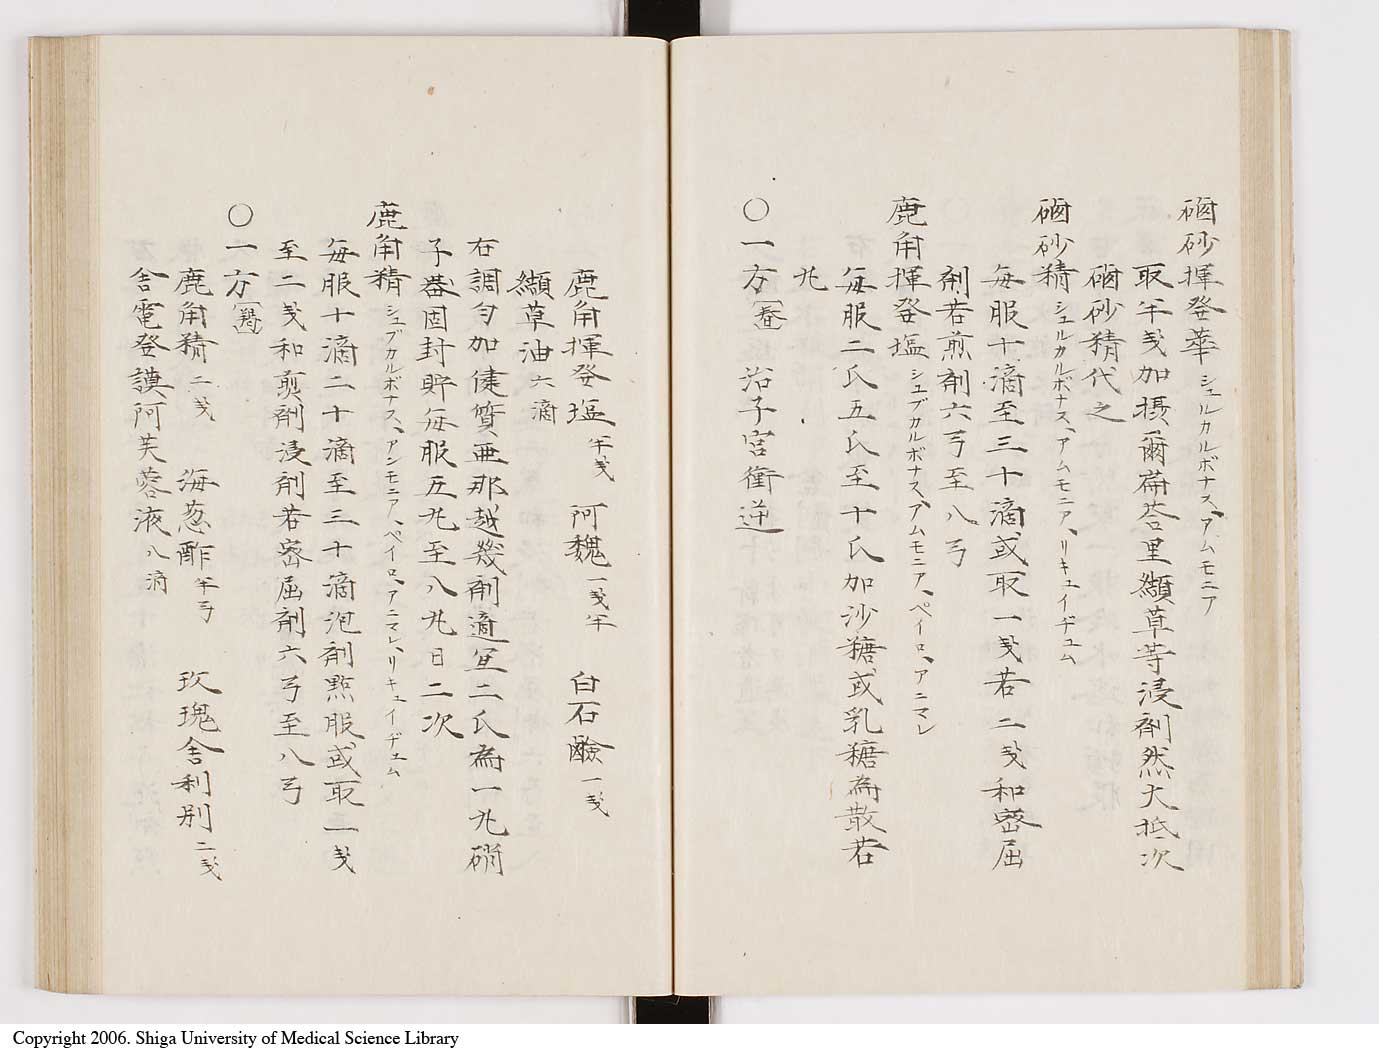 硇砂揮発華 シュルカルボナス、アムモニア
取半戔加摂爾薪荅里纈草等浸剤然大抵次
硇砂精代之
硇砂精 シュルカルボナス、アムモニア、リキュイヂュム
毎服十滴至三十滴或取一戔若二戔和蜜屈
剤若煎剤六弓至八弓
鹿角揮発塩 シュブカルボナス、アムモニア、ペイロ、アニマレ
毎服二氏五氏至十氏加沙糖或乳糖為散若
丸
〇一方 治子宮衝逆
鹿角揮発塩 半戔 阿魏 一戔半 白石鹸 一戔
纈草油 六滴
右調匀加健質亜那越幾剤適宜二氏為一丸硝
子器固封貯毎服五丸至八丸日二次
鹿角精 シュブカルボナス、アンモニア、ペイロ、アニマレ、リキュイヂュム
毎服十滴二十滴至三十滴泡剤點服或取一戔
至二戔和煎剤浸剤若蜜屈剤六弓至八弓
〇一方
鹿角精 二戔 海葱酢 半弓 玫瑰舎利別 二戔
舎電登謨阿芙蓉液 八滴
Copyright 2006. Shiga University of Medical Science Library